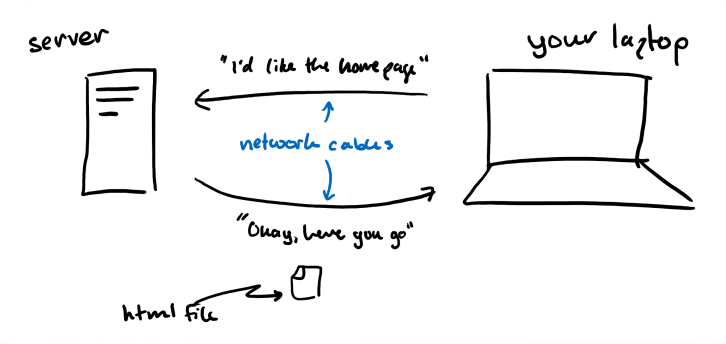 server
your laptop
"I'd like the homepage"
network cables
"Okay, here you go"
html file